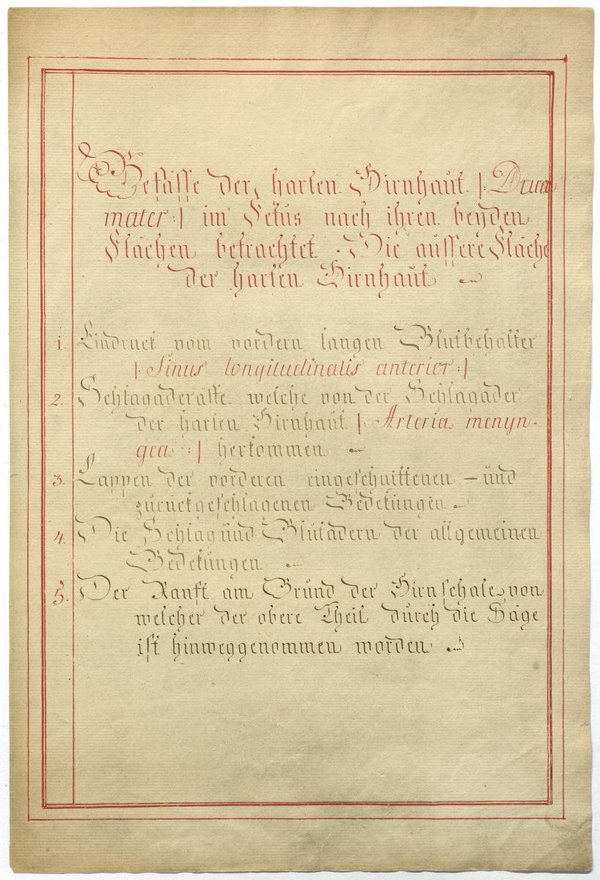 Gefässe der harten Hirnhaut |: Dura
mater :| im Fetus nach ihren beyden
Flächen betrachtet. Die äussere Fläche
der harten Hirnhaut
1. Eindruck vom vordern langen Blutbehälter
|: Sinus longitudinalis anterior :|
2. Schlagaderäste welche von der Schlagader
der harten Hirnhaut |: Arteria menyn-
gea :| herkommen
3. Lappen der vorderen eingeschnittenen – und
zurückgeschlagenen Bedekungen.
4. Die Schlag und Blutadern der allgemeinen
Bedekungen
5. Der Ranft am Grund der Hirnschale, von
welcher der obere Theil durch die Säge
ist hinweggenommen worden